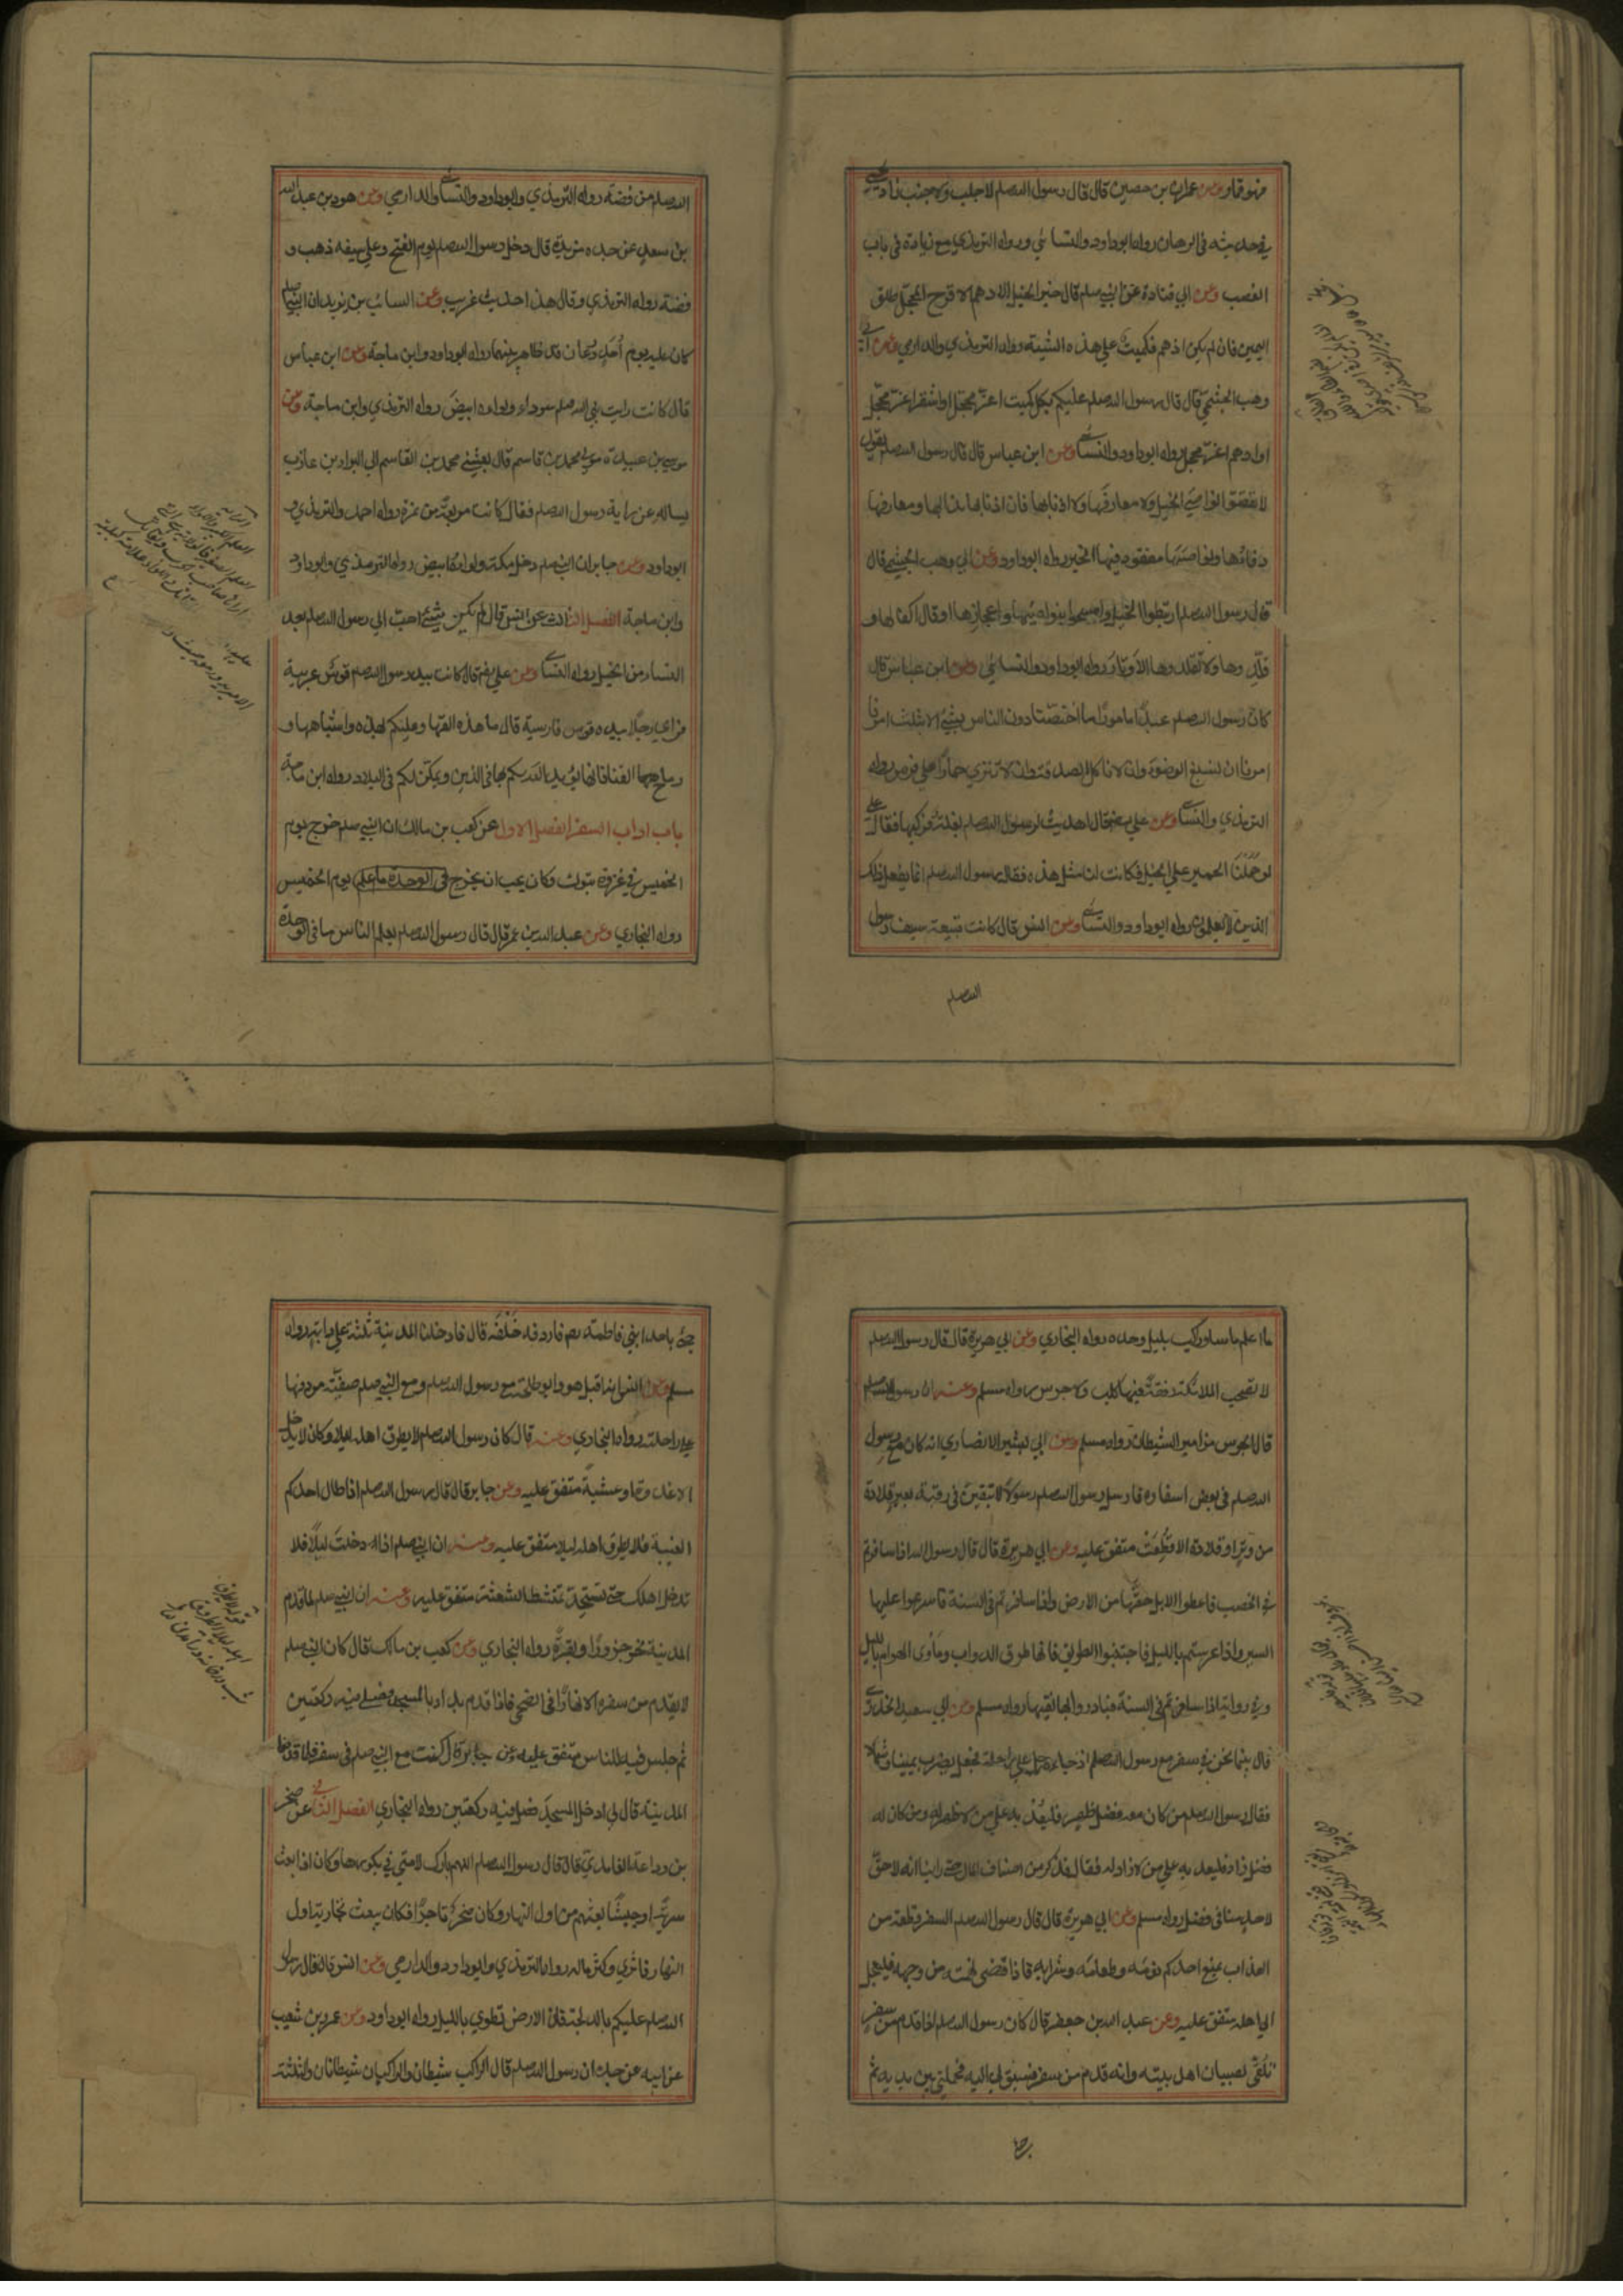 فهو قمار وعن عمران بن حصين قال قال رسول الله صلم لا جلب ولا جنب زاد يحيى
في حديثه في الرهان رواه ابو داود والنسائي ورواه الترمذي مع زيادة في باب
الغصب وعن ابي قتادة عن النبي صلم قال خير الخيل الادهم الاقرح المحجل طلق
اليمين فان لم يكن ادهم فكميت على هذه الشية رواه الترمذي والدارمي وعن ابي
وهب الجشمي قال قال رسول الله صلم عليكم بكل كميت اغر محجل او اشقر اغر محجل
او ادهم اغر محجل رواه ابو داود والنسائي وعن ابن عباس قال قال رسول الله صلم يقول
لا تقصوا نواصي الخيل ولا معارفها ولا اذنابها فان اذنابها مذابها ومعارفها
دفاءها ونواصيها معقود فيها الخير رواه ابو داود وعن ابي وهب الجشمي قال
قال رسول الله صلم ارتبطوا الخيل وامسحوا بنواصيها واعجازها او قال اكفالها و
قلدوها ولا تقلدوها الاوتار رواه ابو داود والنسائي وعن ابن عباس قال
كان رسول الله صلم عبدا مامورا ما اختصنا دون الناس بشيء الا بثلث امرنا
امرنا ان نسبغ الوضوء وان لا ناكل الصدقة وان لا ننزي حمارا على فرس رواه
الترمذي والنسائي وعن علي رض قال اهديت لرسول الله صلم بغلة فركبها فقال علي
لو حملنا الحمير على الخيل فكانت لنا مثل هذه فقال رسول الله صلم انما يفعل ذلك
الذين لا يعلمون رواه ابو داود والنسائي وعن انس قال كانت قبيعة سيف رسول
الله صلم
الله صلم من فضة رواه الترمذي وابو داود والنسائي والدارمي وعن هود بن عبد الله
بن سعد عن جده مزيدة قال دخل رسول الله صلم يوم الفتح وعلى سيفه ذهب و
فضة رواه الترمذي وقال هذا حديث غريب وعن السائب بن يزيد ان النبي صلم
كان عليه يوم أحد درعان قد ظاهر بينهما رواه ابو داود وابن ماجة وعن ابن عباس
قال كانت راية نبي الله صلم سوداء ولواءه ابيض رواه الترمذي وابن ماجة وعن
موسى بن عبيدة مولى محمد بن قاسم قال بعثني محمد بن القاسم الى البراء بن عازب
يساله عن راية رسول الله صلم فقال كانت سوداء مربعة من نمرة رواه احمد والترمذي و
ابو داود وعن جابر ان النبي صلم دخل مكة ولواءه ابيض رواه الترمذي وابو داود
وابن ماجة الفصل الثالث عن انس قال لم يكن شيء احب الى رسول الله صلم بعد
النساء من الخيل رواه النسائي وعن علي رض قال كانت بيد رسول الله صلم قوس عربية
فراى رجلا بيده قوس فارسية قال ما هذه القها وعليكم بهذه واشباهها و
رماح القنا فانها يؤيد الله لكم بها في الدين ويمكن لكم في البلاد رواه ابن ماجة
باب اداب السفر الفصل الاول عن كعب بن مالك ان النبي صلم خرج يوم
الخميس في غزوة تبوك وكان يحب ان يخرج في الوحدة ما علم يوم الخميس
رواه البخاري وعن عبد الله بن عمر قال قال رسول الله صلم لو يعلم الناس ما في الوحدة
ما اعلم ما سار راكب بليل وحده رواه البخاري وعن ابي هريرة قال قال رسول الله صلم
لا تصحب الملائكة رفقة فيها كلب ولا جرس رواه مسلم وعنه ان رسول الله صلم
قال الجرس مزامير الشيطان رواه مسلم وعن ابي بشير الانصاري انه كان مع رسول
الله صلم في بعض اسفاره فارسل رسول الله صلم رسولا لا تبقين في رقبة بعير قلادة
من وتر او قلادة الا قطعت متفق عليه وعن ابي هريرة قال قال رسول الله اذا سافرتم
في الخصب فاعطوا الابل حقها من الارض واذا سافرتم في السنة فاسرعوا عليها
السير واذا عرستم بالليل فاجتنبوا الطريق فانها طرق الدواب وماوى الهوام بالليل
وفي رواية اذا سافرتم في السنة فبادروا بها نقيها رواه مسلم وعن ابي سعيد الخدري
قال بينما نحن في سفر مع رسول الله صلم اذ جاءه رجل على راحلة فجعل يضرب يمينا وشمالا
فقال رسول الله صلم من كان معه فضل ظهر فليعد به على من لا ظهر له ومن كان له
فضل زاد فليعد به على من لا زاد له فقال فذكر من اصناف المال حتى راينا انه لا حق
لاحد منا في فضل رواه مسلم وعن ابي هريرة قال قال رسول الله صلم السفر قطعة من
العذاب يمنع احدكم نومه وطعامه وشرابه فاذا قضى نهمته من وجهه فليعجل
الى اهله متفق عليه وعن عبد الله بن جعفر قال كان رسول الله صلم اذا قدم من سفر
تلقى بصبيان اهل بيته وانه قدم من سفر فسبق بي اليه فحملني بين يديه ثم
جيء باحد ابني فاطمة رض فاردفه خلفه قال فادخلنا المدينة ثلثة على دابة رواه
مسلم وعن انس انه اقبل هو وابو طلحة مع رسول الله صلم ومع النبي صلم صفية مردفها
على راحلته رواه البخاري وعنه قال كان رسول الله صلم لا يطرق اهله ليلا وكان لا يدخل
الا غدوة او عشية متفق عليه وعن جابر قال قال رسول الله صلم اذا طال احدكم
الغيبة فلا يطرق اهله ليلا متفق عليه وعنه ان النبي صلم اذا دخلت ليلا فلا
تدخل اهلك حتى تستحد وتمتشط الشعثة متفق عليه وعنه ان النبي صلم لما قدم
المدينة نحر جزورا او بقرة رواه البخاري وعن كعب بن مالك قال كان النبي صلم
لا يقدم من سفر الا نهارا في الضحى فاذا قدم بدا بالمسجد فصلى فيه ركعتين
ثم جلس فيه للناس متفق عليه وعن جابر قال كنت مع النبي صلم في سفر فلما قدمنا
المدينة قال لي ادخل المسجد فصل فيه ركعتين رواه البخاري الفصل الثاني عن صخر
بن وداعة الغامدي قال قال رسول الله صلم اللهم بارك لامتي في بكورها وكان اذا بعث
سرية او جيشا بعثهم من اول النهار وكان صخر تاجرا فكان يبعث تجارته اول
النهار فاثرى وكثر ماله رواه الترمذي وابو داود والدارمي وعن انس قال قال رسول
الله صلم عليكم بالدلجة فان الارض تطوى بالليل رواه ابو داود وعن عمرو بن شعيب
عن ابيه عن جده ان رسول الله صلم قال الراكب شيطان والراكبان شيطانان والثلثة